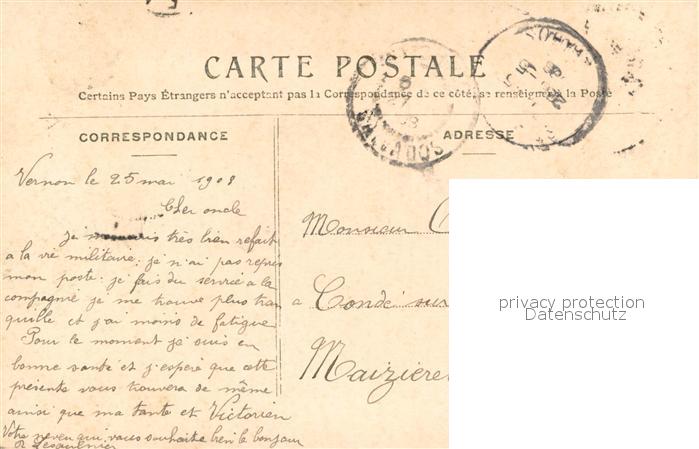 CARTE POSTALE
Certains Pays Étrangers n'acceptant pas la Correspondance de ce côté, se renseigner à la Poste
CORRESPONDANCE
ADRESSE
Vernon le 25 mai 1908
Cher oncle
Je suis très bien refait
a la vie militaire; je n'ai pas repris
mon poste. je fais du service a la
compagnie je me trouve plus tran
quille et j'ai moins de fatigue
Pour le moment je suis en
bonne santé et j'espère que cette
présente vous trouvera de même
ainsi que ma tante et Victorien
Votre neveu qui vous souhaite bien le bonjour
Monsieur
a Condé sur
Maiziere
privacy protection
Datenschutz